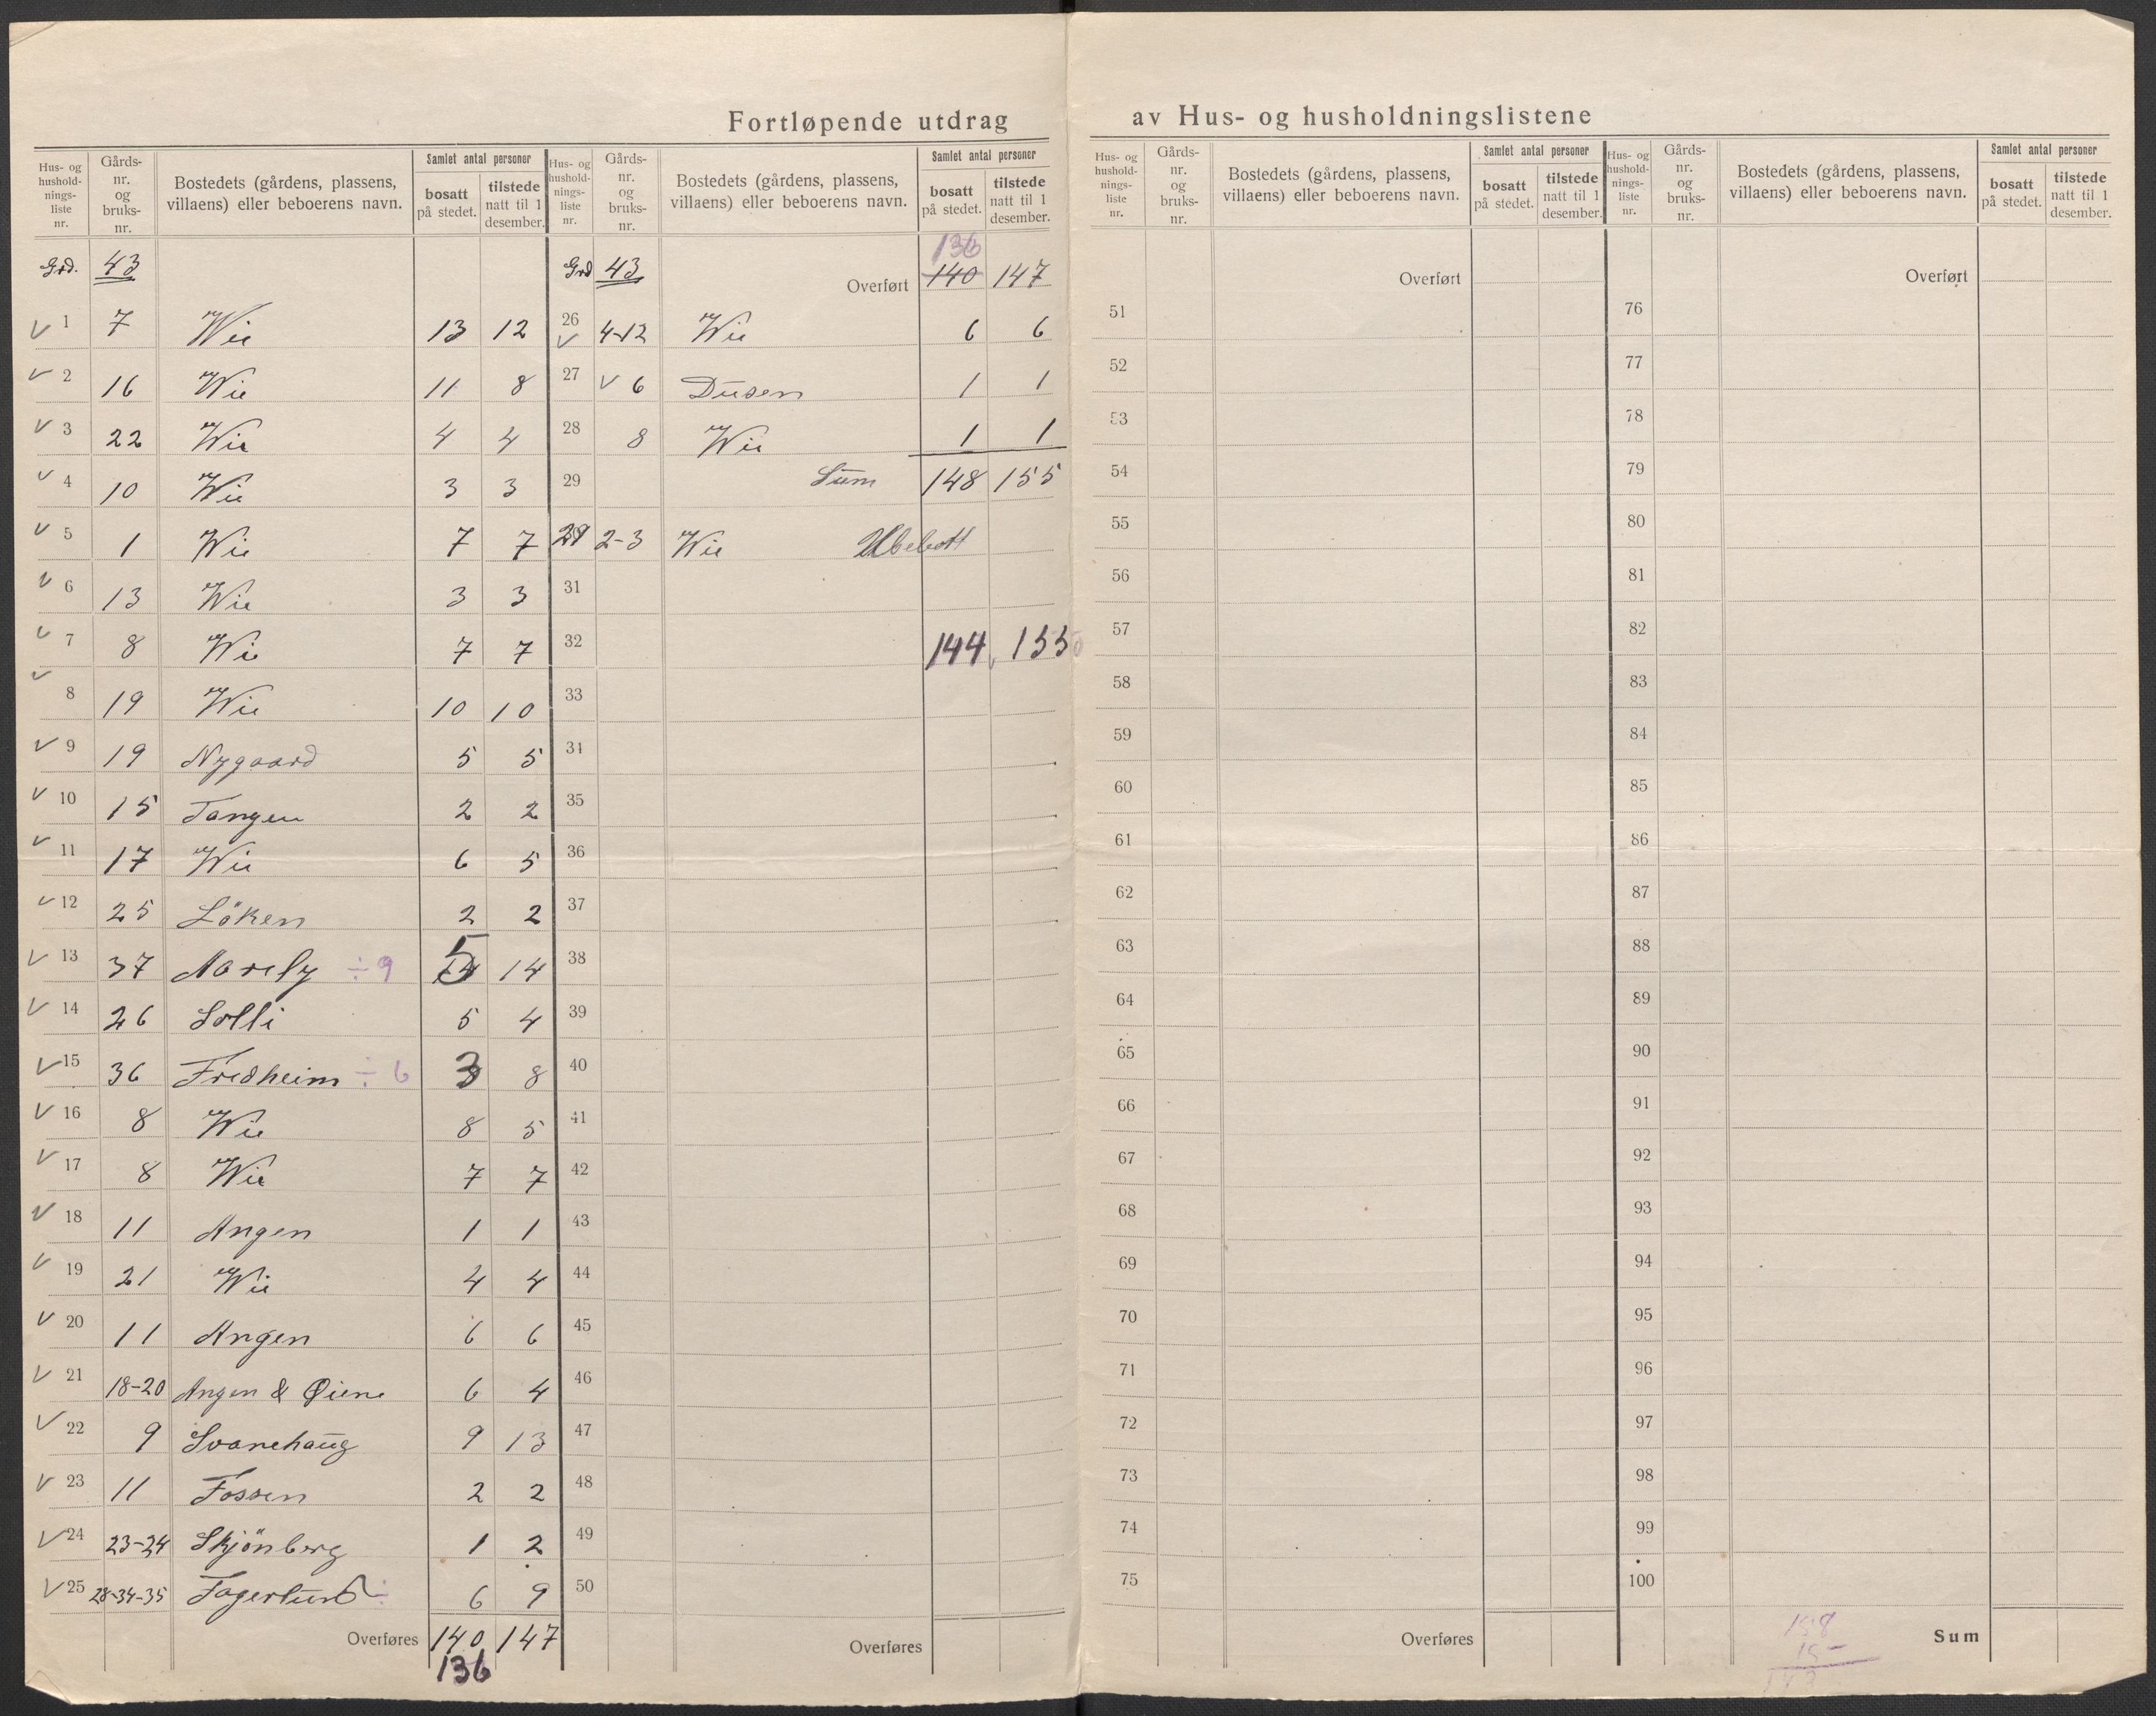 Fortløpende utdrag av Hus- og husholdningslistene
Hus- og husholdningsliste nr. | Gårdsnr. og bruksnr. | Bostedets (gårdens, plassens, villaens) eller beboerens navn. | Samlet antal personer | bosatt på stedet. | tilstede natt til 1 desember.
Grd. 43
✓ 1 7 Wie 13 12
✓ 2 16 Wie 11 8
✓ 3 22 Wie 4 4
✓ 4 10 Wie 3 3
✓ 5 1 Wie 7 7
✓ 6 13 Wie 3 3
✓ 7 8 Wie 7 7
✓ 8 19 Wie 10 10
✓ 9 19 Nygaard 5 5
✓ 10 15 Tangen 2 2
✓ 11 17 Wie 6 5
✓ 12 25 Löken 2 2
✓ 13 37 Narely ÷ 9 5 14
✓ 14 26 Solli 5 4
✓ 15 36 Fredheim ÷ 6 3 8
✓ 16 8 Wie 8 5
✓ 17 8 Wie 7 7
✓ 18 11 Angen 1 1
✓ 19 21 Wie 4 4
✓ 20 11 Angen 6 6
✓ 21 18-20 Angen & Øiene 6 4
✓ 22 9 Svanehaug 9 13
✓ 23 11 Fossen 2 2
✓ 24 23-24 Skjönberg 1 2
✓ 25 28-34-35 Fagerlund ÷ 6 9
Overføres 140 147
136
Hus- og husholdningsliste nr. | Gårdsnr. og bruksnr. | Bostedets (gårdens, plassens, villaens) eller beboerens navn. | Samlet antal personer | bosatt på stedet. | tilstede natt til 1 desember.
136
Grd 43 Overført 140 147
26 ✓ 4-12 Wie 6 6
27 ✓ 6 Dusen 1 1
28 8 Wie 1 1
29 Sum 148 155
29 2-3 Wie Ubebott
31
32 144 155
33
34
35
36
37
38
39
40
41
42
43
44
45
46
47
48
49
50
Overføres
Hus- og husholdningsliste nr. | Gårdsnr. og bruksnr. | Bostedets (gårdens, plassens, villaens) eller beboerens navn. | Samlet antal personer | bosatt på stedet. | tilstede natt til 1 desember.
Overført
51
52
53
54
55
56
57
58
59
60
61
62
63
64
65
66
67
68
69
70
71
72
73
74
75
Overføres
Hus- og husholdningsliste nr. | Gårdsnr. og bruksnr. | Bostedets (gårdens, plassens, villaens) eller beboerens navn. | Samlet antal personer | bosatt på stedet. | tilstede natt til 1 desember.
Overført
76
77
78
79
80
81
82
83
84
85
86
87
88
89
90
91
92
93
94
95
96
97
98
99
100
158
15
Sum